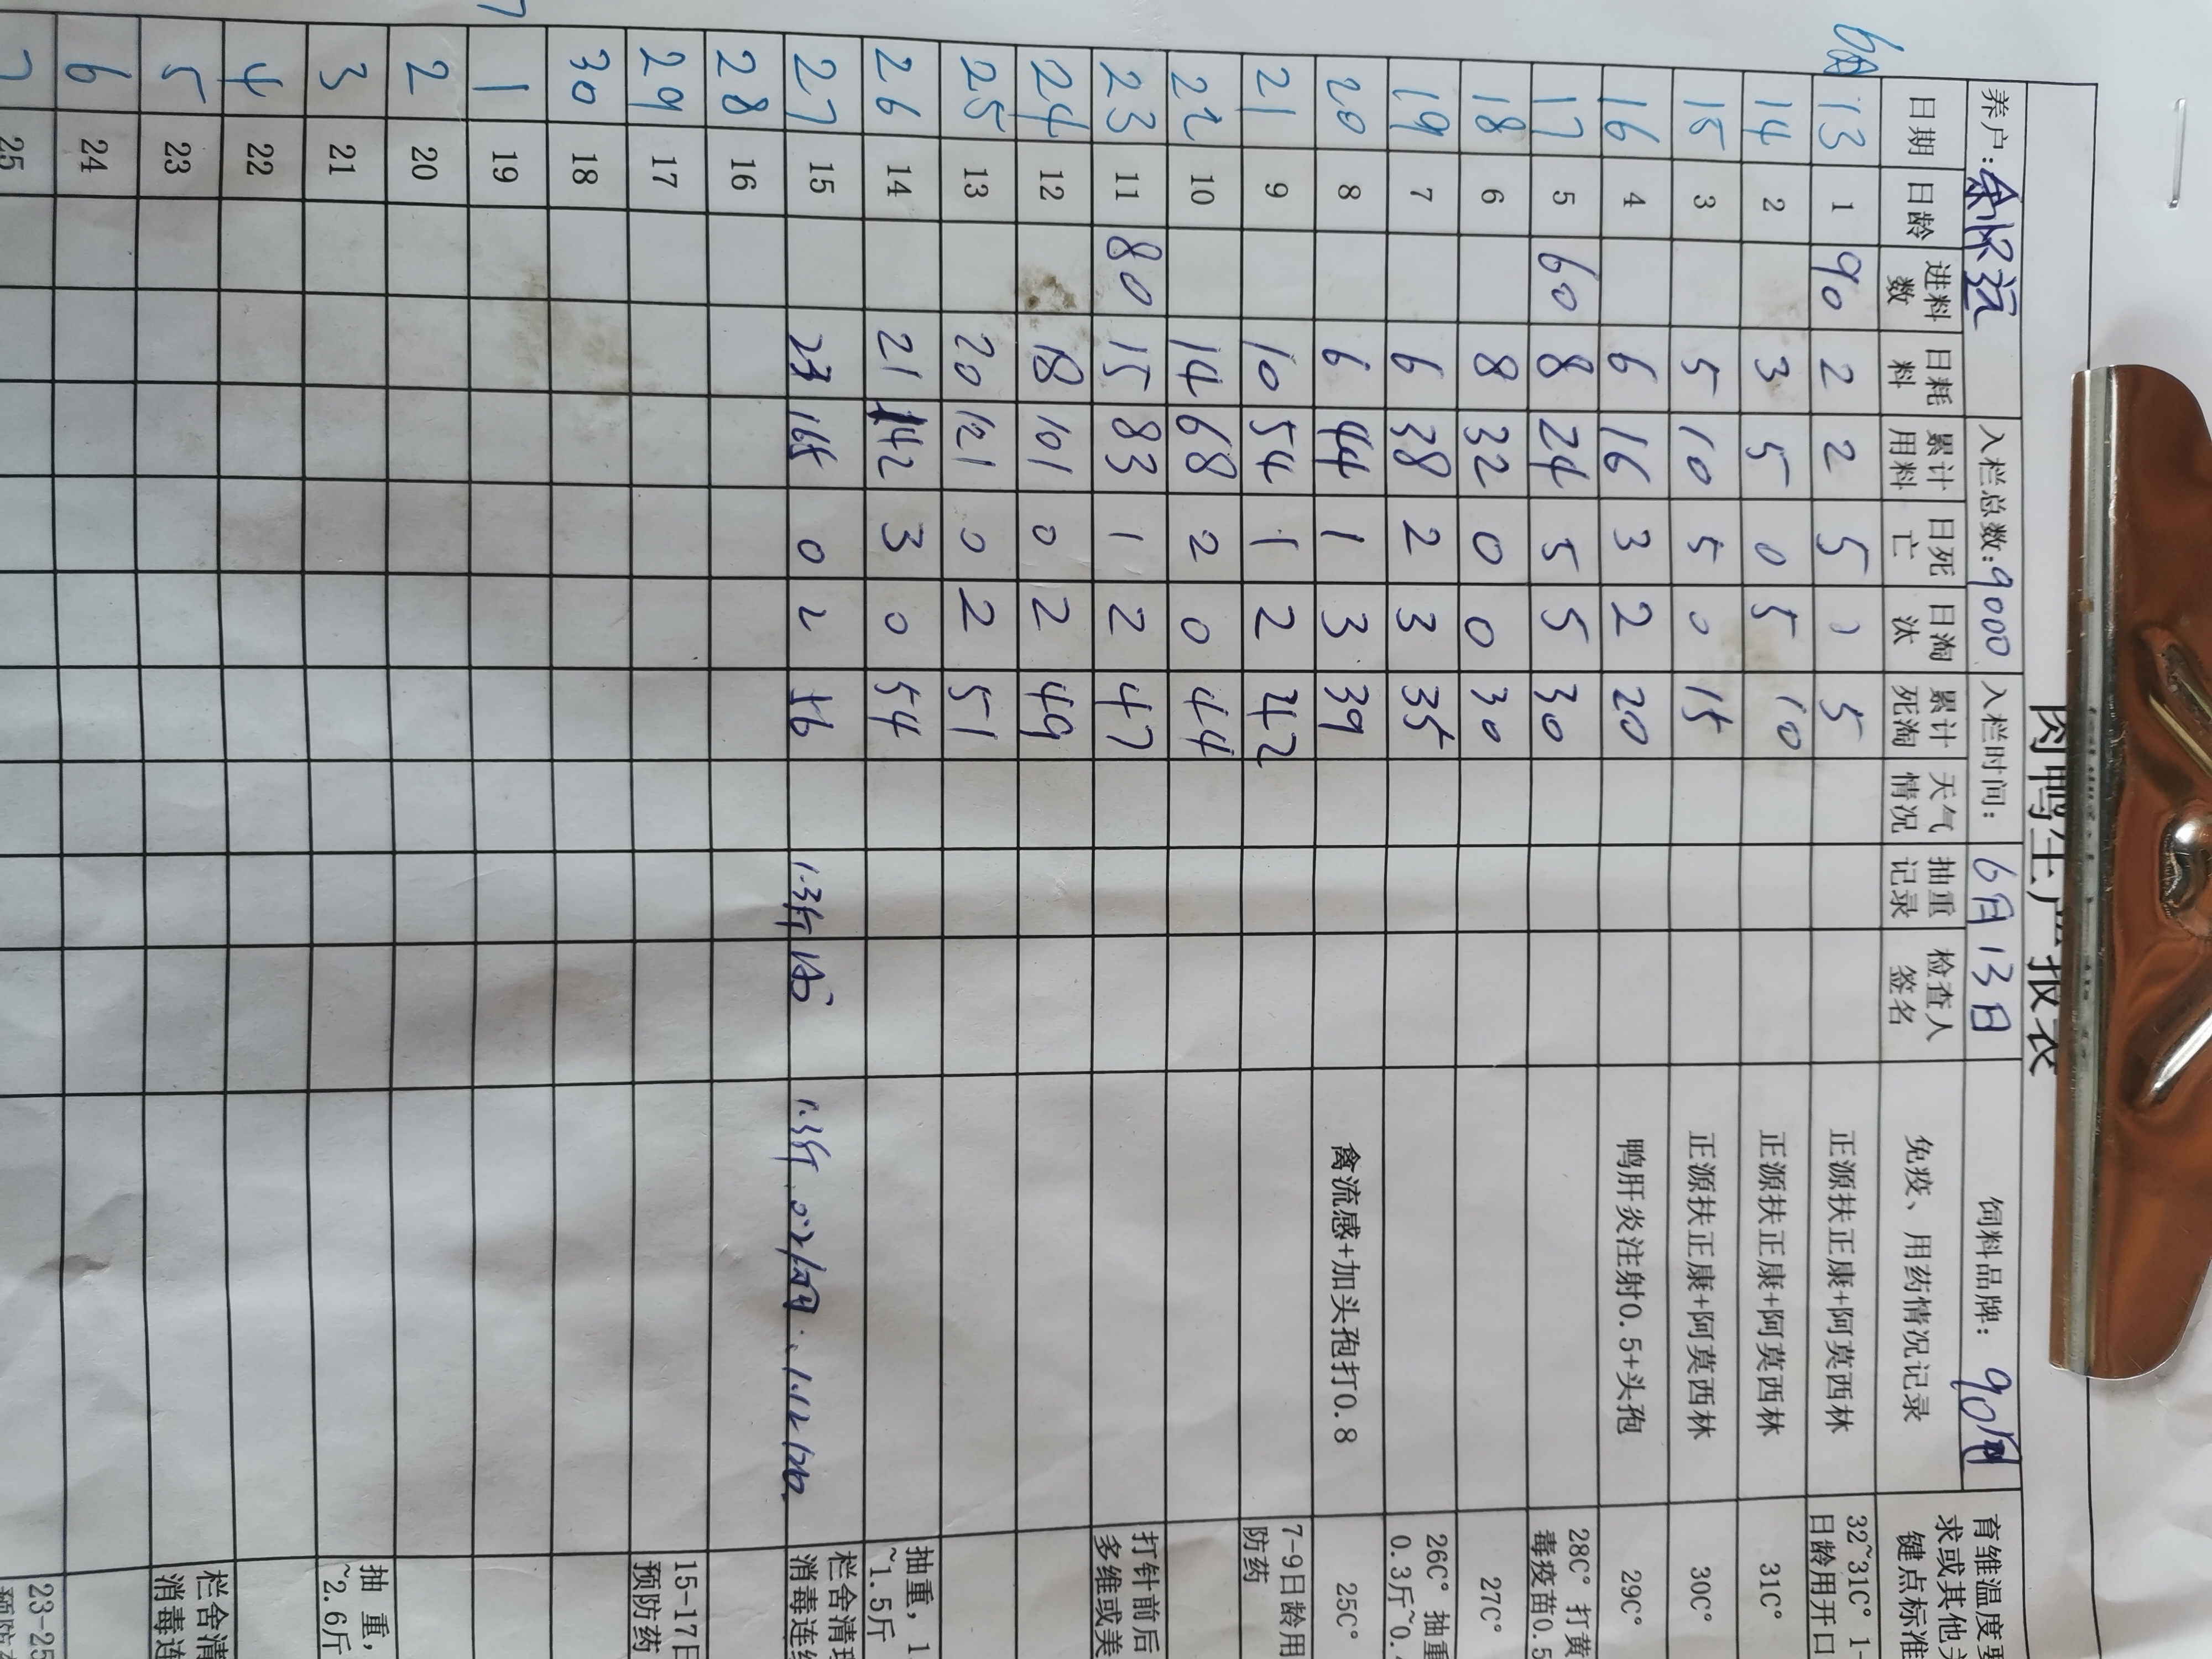 肉鸭生产报表
养户: 入栏总数:9000 入栏时间: 6月13日 饲料品牌: 90
育雏温度要
求或其他关
键点标准
日期 日龄 进料数 日耗料 累计用料 日死亡 日淘汰 累计死淘 天气情况 抽重记录 检查人签名 免疫、用药情况记录
13 1 90 2 2 5 0 5 正源扶正康+阿莫西林 32~31C° 1-
日龄用开口
14 2 3 5 0 5 10 正源扶正康+阿莫西林 31C°
15 3 5 10 5 0 15 正源扶正康+阿莫西林 30C°
16 4 6 16 3 2 20 鸭肝炎注射0.5+头孢 29C°
17 5 60 8 24 5 5 30 28C° 打黄
毒疫苗0.5
18 6 8 32 0 0 30 27C°
19 7 6 38 2 3 35 26C° 抽重
0.3斤~0.
20 8 6 44 1 3 39 禽流感+加头孢打0.8 25C°
21 9 10 54 1 2 42 7-9日龄用
防药
22 10 14 68 2 0 44
23 11 80 15 83 1 2 47 打针前后
多维或美
24 12 18 101 0 2 49
25 13 20 121 0 2 51
26 14 21 142 3 0 54 抽重, 1
~1.5斤
27 15 23 165 0 2 56 1.3斤 1.3斤
栏舍清理
消毒连续
28 16
29 17 15-17日
预防药
30 18
1 19
2 20
3 21 抽 重,
~2.6斤
4 22
5 23 栏舍清
消毒连
6 24
7 25 23-25
预防